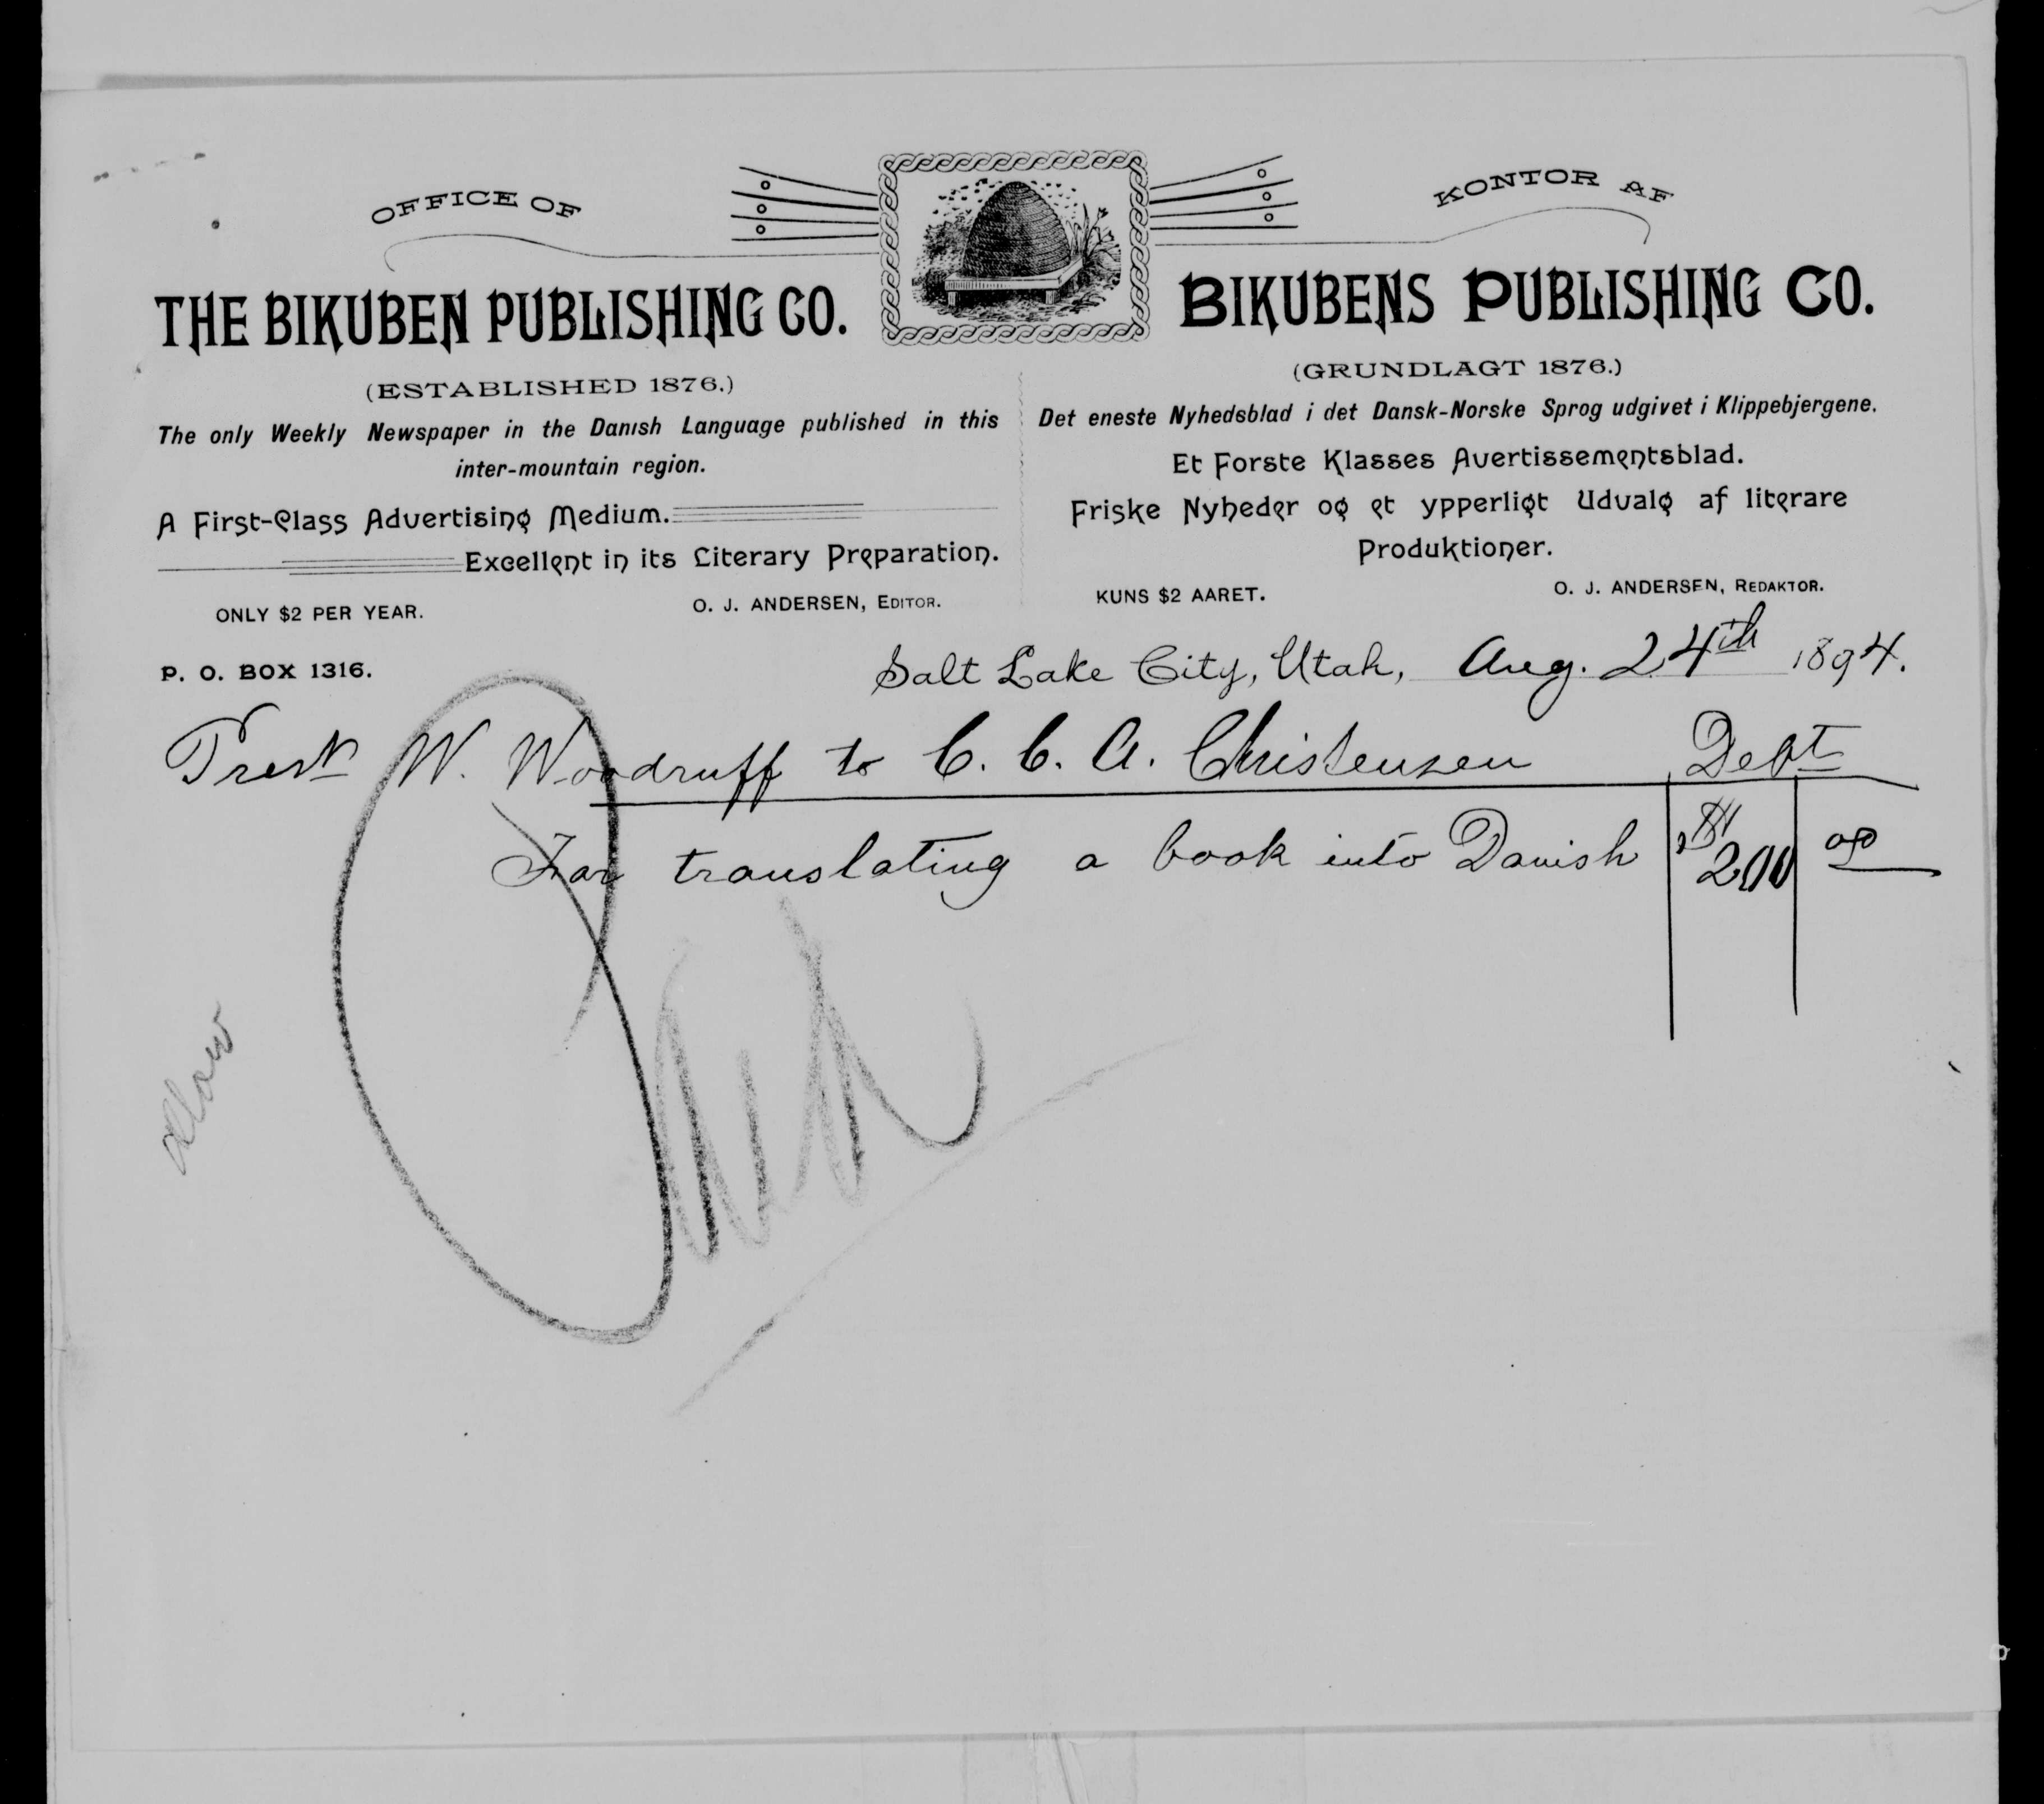 OFFICE OF
THE BIKUBEN PUBLISHING CO.
(ESTABLISHED 1876.)
The only Weekly Newspaper in the Danish Language published in this
inter-mountain region.
A First-Class Advertising Medium.
Excellent in its Literary Preparation.
ONLY $2 PER YEAR.
O. J. ANDERSEN, EDITOR.
P. O. BOX 1316.
KONTOR AF
BIKUBENS PUBLISHING CO.
(GRUNDLAGT 1876.)
Det eneste Nyhedsblad i det Dansk-Norske Sprog udgivet i Klippebjergene.
Et Forste Klasses Avertissementsblad.
Friske Nyheder og et ypperligt Udvalg af literare
Produktioner.
KUNS $2 AARET.
O. J. ANDERSEN, REDAKTOR.
Salt Lake City, Utah, Aug. 24th 1894.
Prest W. Woodruff to C. C. A. Christensen Debt
For translating a book into Danish $200 00
Paid
allow